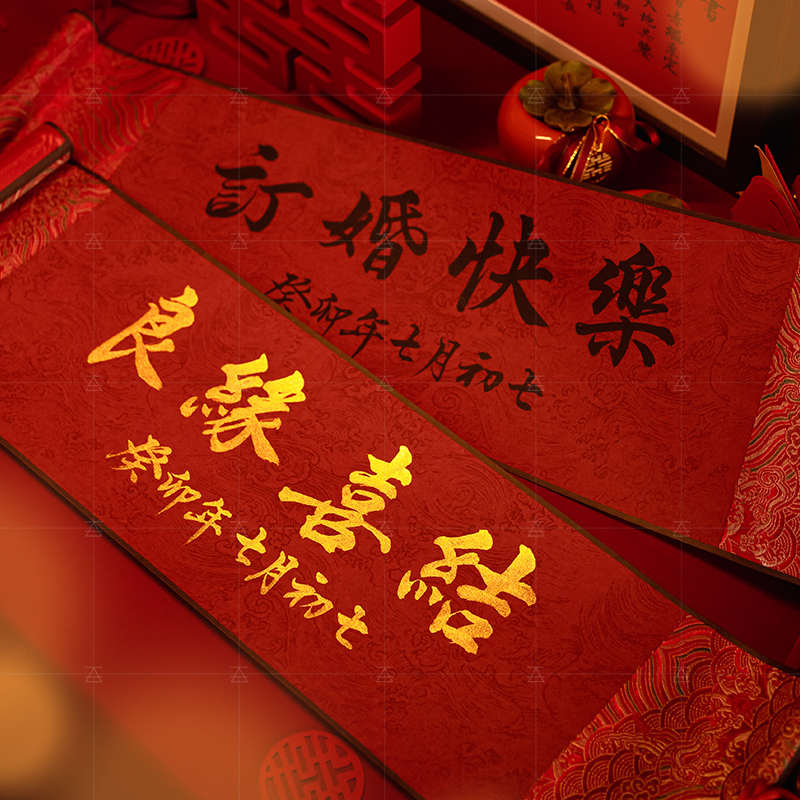 訂婚快樂
癸卯年七月初七
良緣喜結
癸卯年七月初七